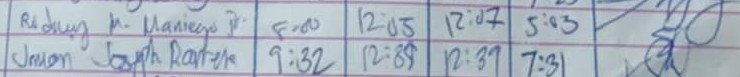 Rodney M. Maniego Jr. 8:00 12:05 12:07 5:03
Joseph 9:32 12:38 12:39 7:31